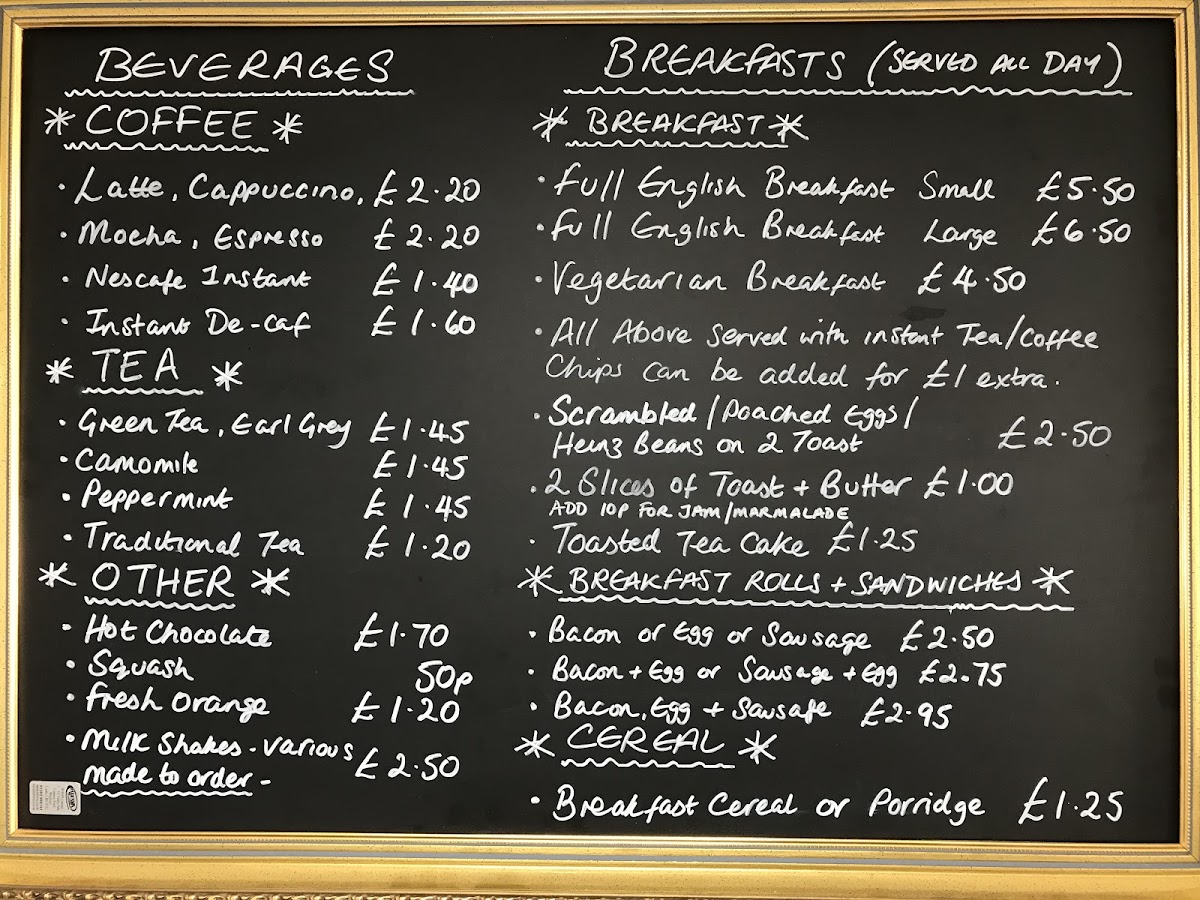 BEVERAGES
* COFFEE *
· Latte, Cappuccino, £2.20
· Mocha, Espresso £2.20
· Nescafe Instant £1.40
· Instant De-caf £1.60
* TEA *
· Green Tea, Earl Grey £1.45
· Camomile £1.45
· Peppermint £1.45
· Traditional Tea £1.20
* OTHER *
· Hot Chocolate £1.70
· Squash 50p
· Fresh Orange £1.20
· Milk Shakes - various £2.50
made to order -
BREAKFASTS (SERVED ALL DAY)
* BREAKFAST *
· Full English Breakfast Small £5.50
· Full English Breakfast Large £6.50
· Vegetarian Breakfast £4.50
· All Above Served with instant Tea/Coffee
Chips can be added for £1 extra.
· Scrambled/Poached Eggs/
Heinz Beans on 2 Toast £2.50
· 2 Slices of Toast + Butter £1.00
ADD 10P FOR JAM/MARMALADE
· Toasted Tea Cake £1.25
* BREAKFAST ROLLS + SANDWICHES *
· Bacon or Egg or Sausage £2.50
· Bacon + Egg or Sausage + Egg £2.75
· Bacon, Egg + Sausage £2.95
* CEREAL *
· Breakfast Cereal or Porridge £1.25